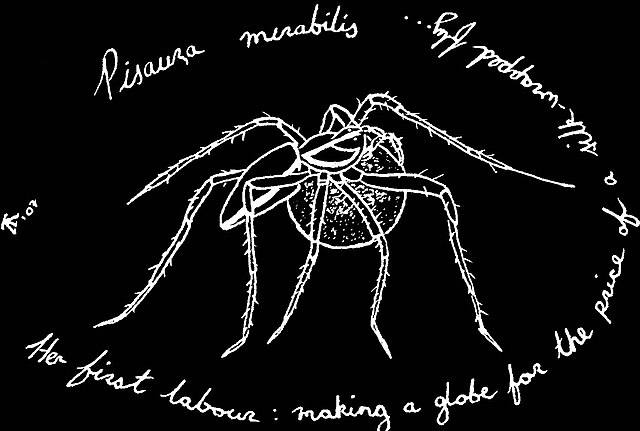 Pisaura mirabilis
Her first labour: making a globe for the price of a silk-wrapped fly...